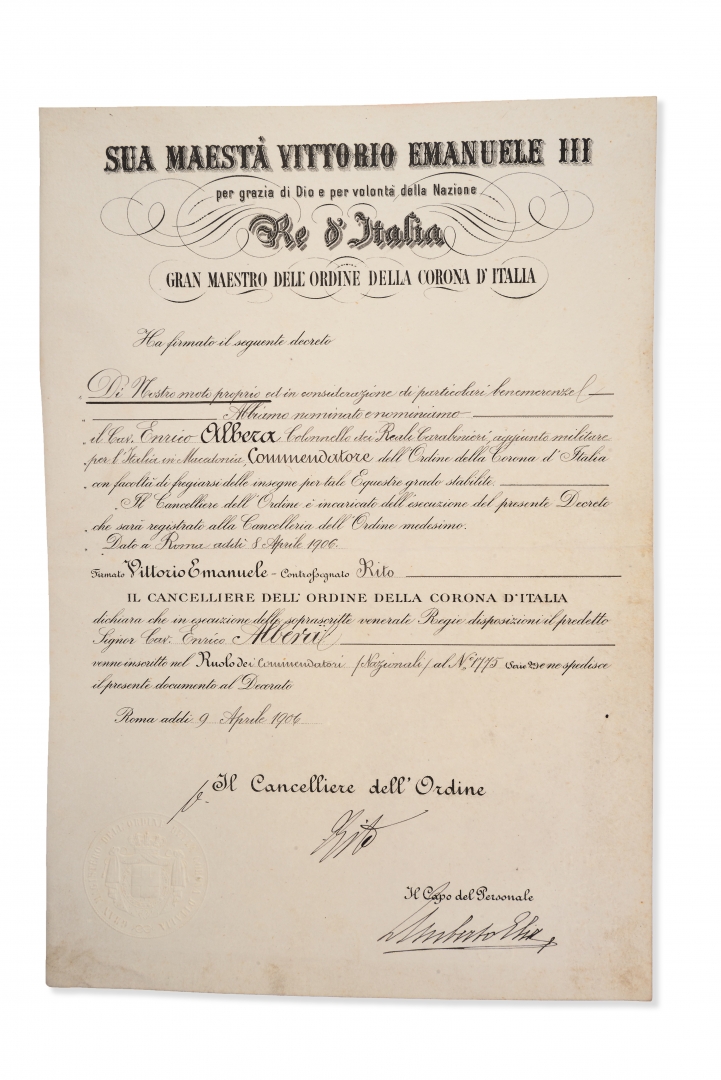 SUA MAESTÀ VITTORIO EMANUELE III
per grazia di Dio e per volontà della Nazione
Re d'Italia
GRAN MAESTRO DELL'ORDINE DELLA CORONA D'ITALIA
Ha firmato il seguente decreto
Di Nostro moto proprio ed in considerazione di particolari benemerenze
Abbiamo nominato e nominiamo
il Cav. Enrico Albera Colonnello dei Reali Carabinieri, aggiunto militare
per l'Italia in Macedonia, Commendatore dell'Ordine della Corona d'Italia
con facoltà di fregiarsi delle insegne per tale Equestre grado stabilite.
Il Cancelliere dell'Ordine è incaricato dell'esecuzione del presente Decreto
che sarà registrato alla Cancelleria dell'Ordine medesimo.
Dato a Roma addì 8 Aprile 1906.
Firmato Vittorio Emanuele - Controssegnato Rito
IL CANCELLIERE DELL'ORDINE DELLA CORONA D'ITALIA
dichiara che in esecuzione delle soprascritte venerate Regie disposizioni il predetto
Signor Cav. Enrico Albera
venne inscritto nel Ruolo dei Commendatori (Nazionali) al N.° 7775 (Serie 2a) e ne spedisce
il presente documento al Decorato
Roma addì 9 Aprile 1906
p. Il Cancelliere dell'Ordine
Rito
Il Capo del Personale